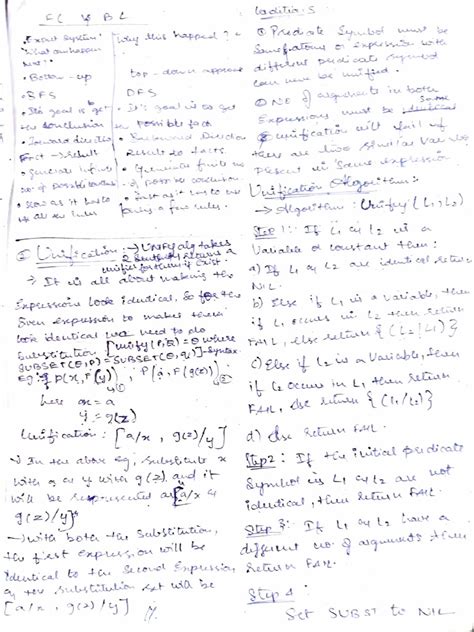 FC Vs BL
Expert System
What can happen next?
• Bottom-up
• BFS
• It's goal is to get
the conclusion
• Forward direction
Fact → Result
• slow as it has to
all the rules
Why this happened?
top-down approach
DFS
• it's goal is to get
possible fact
• Backward Direction
Result to facts.
using a few rules.
Unification: → UNFY alg takes
2 sentences returns a
unifier for them if exist.
→ It is all about making the
Expressions look identical. So for the
Given expression to makes them
look identical we need to do
Substitution [Unify(P,Q)=θ where
SUBSET(θ,P)=SUBSET(θ,q)]-Syntax
Eg: P(x, F(y)) ①, P(a, F(g(z))) ②
here x = a
y = g(z)
Unification: [a/x, g(z)/y]
→ In the above eg, substitute x
with a & y with g(z) and it
will be represented as [a/x &
g(z)/y]
→ with both the substitution,
the first expression will be
identical to the Second Expression
& the substitution set will be
[a/x, g(z)/y]
① Predicate Symbol must be
Same, atoms or expression with
different predicate symbol
can never be unified.
② No of arguments in both
Expressions must be Same
③ Unification will fail if
there are two similar Variables
Present in Same expression
Unification Algorithm:
→ Algorithm: Unify(L1, L2)
Step 1: If L1 or L2 is a
Variable or constant then:
a) If L1 or L2 are identical return
NIL.
b) Else if L1 is a variable, then
if L1 occurs in L2 then return
FAIL, else return {(L2/L1)}
c) Else if L2 is a Variable, then
if L2 occurs in L1 then return
FAIL, else return {(L1/L2)}
d) else return FAIL.
Step 2: If the initial predicate
Symbol in L1 & L2 are not
identical, then return FAIL.
Step 3: If L1 & L2 have a
different no. of arguments then
return FAIL.
Step 4:
Set SUBST to NIL